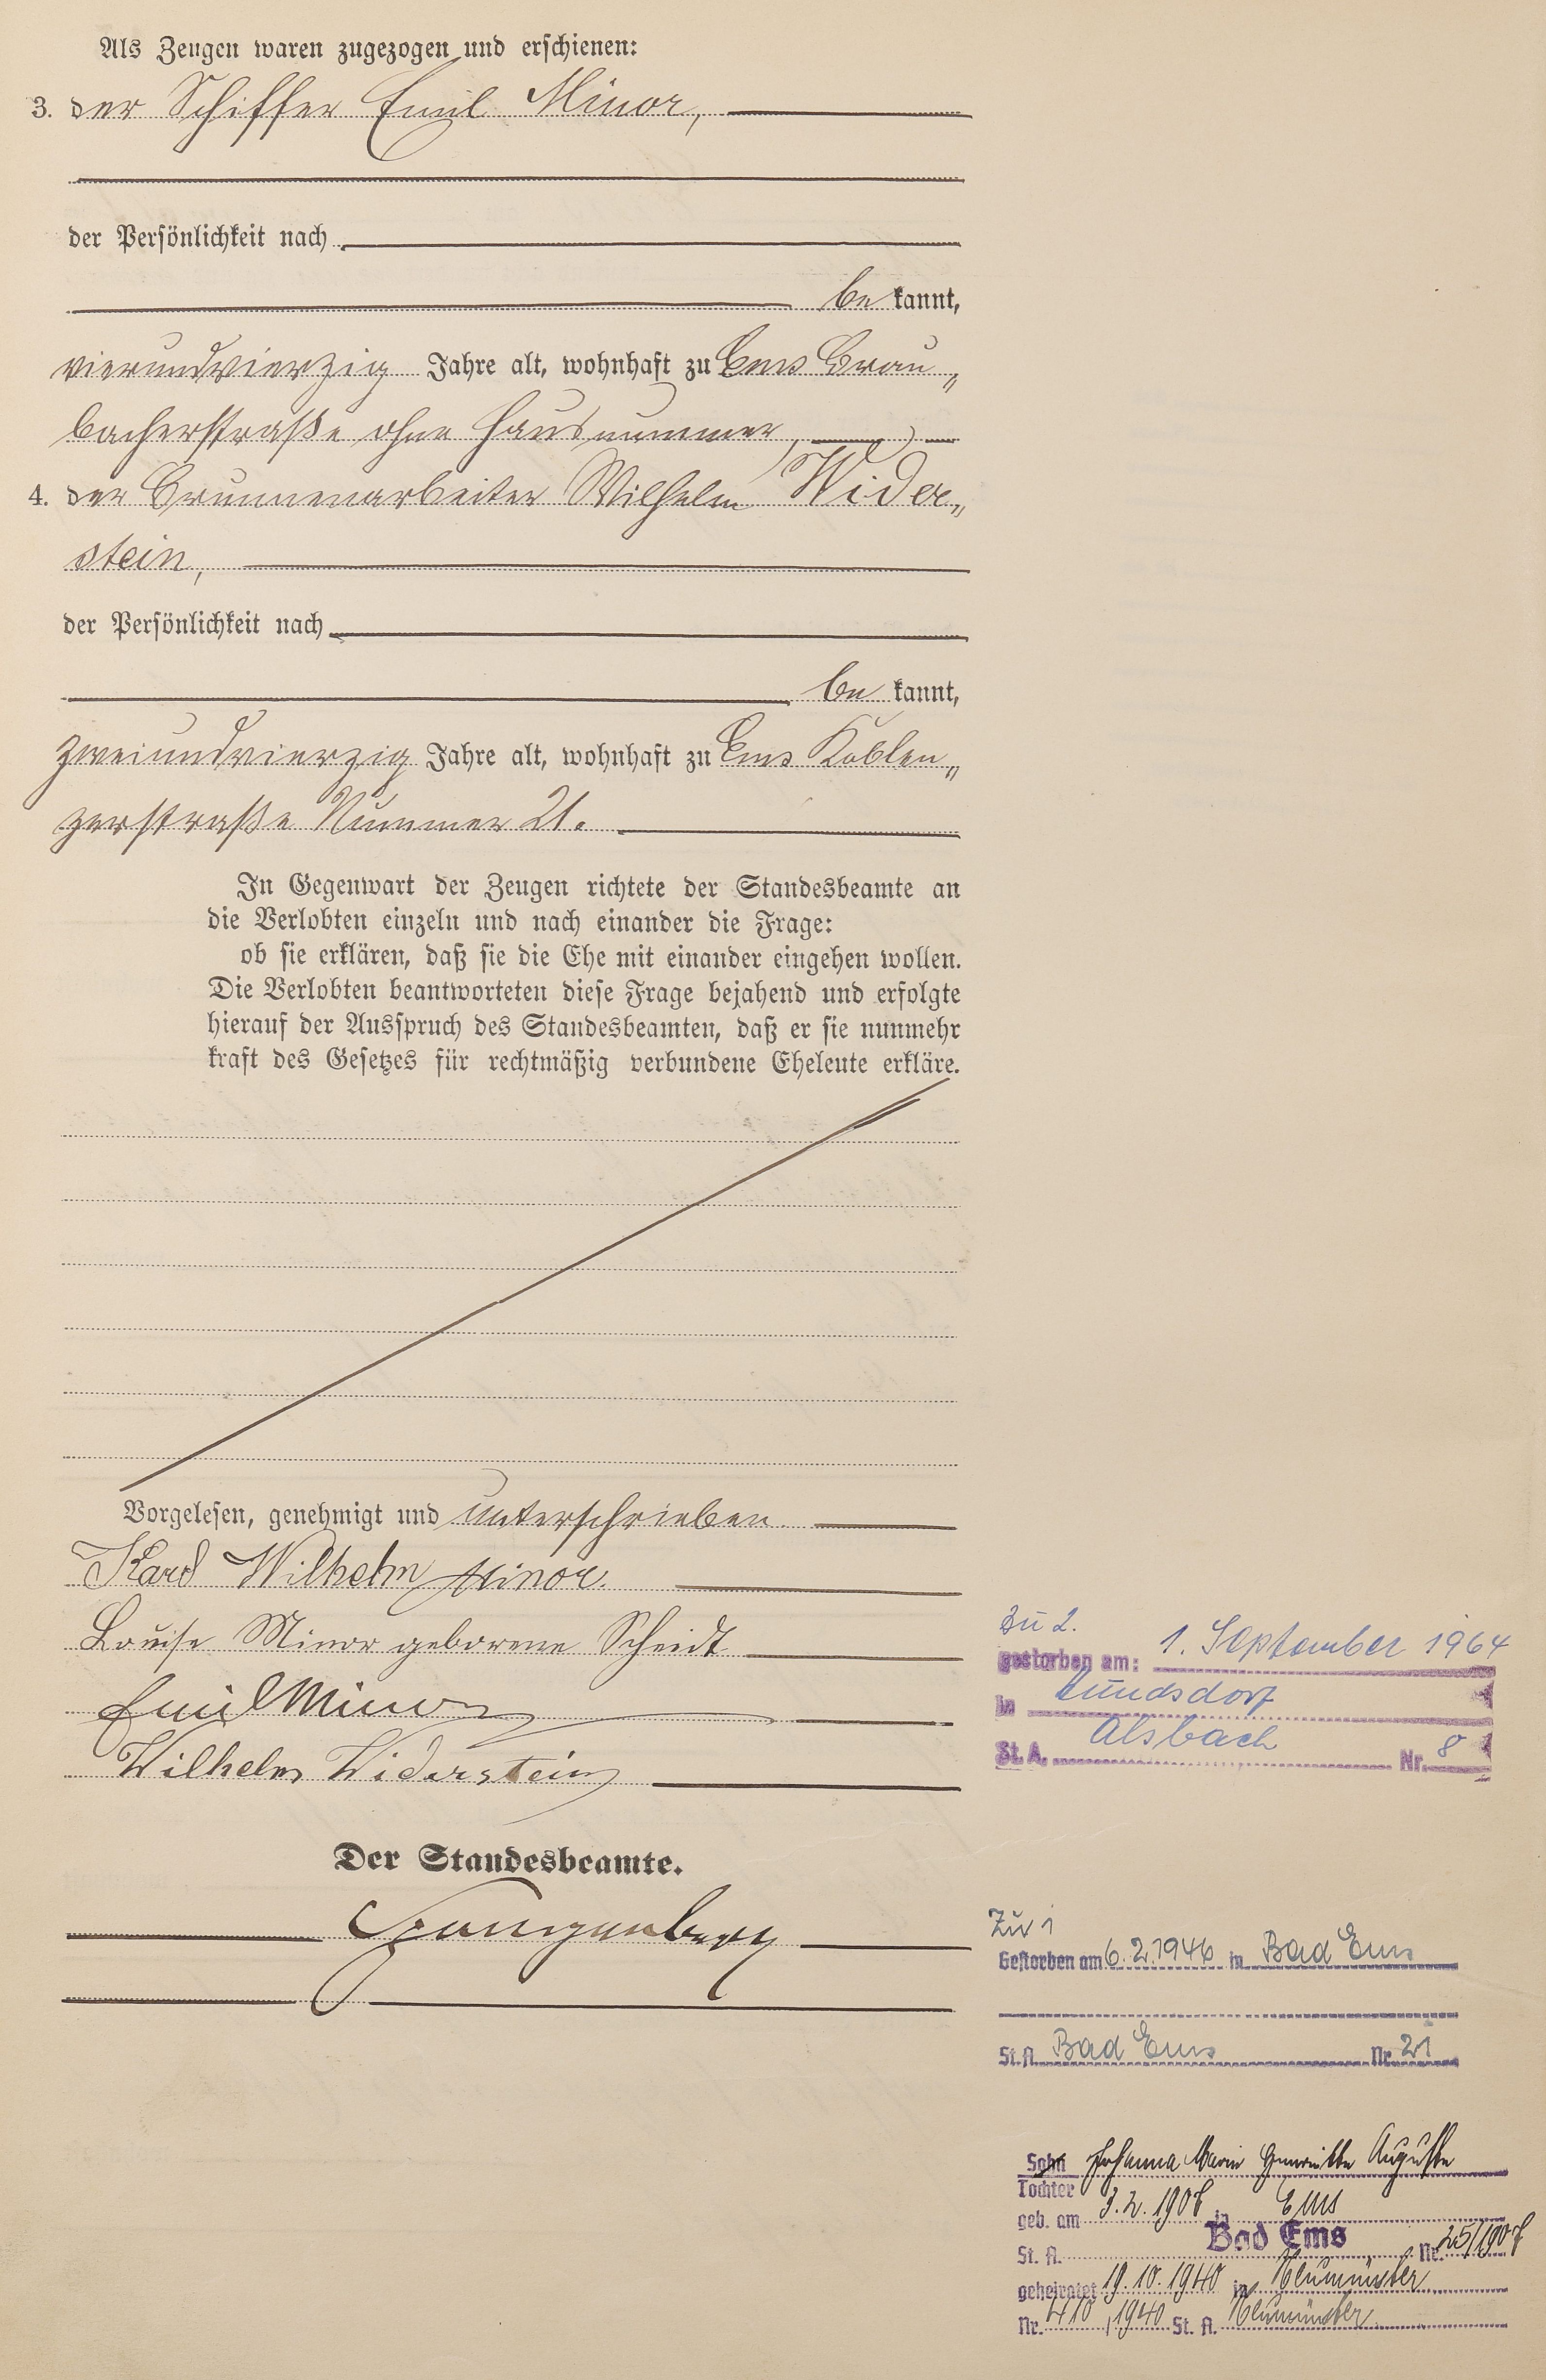 Als Zeugen waren zugezogen und erschienen:
3. der Schiffer Emil Minor,
der Persönlichkeit nach
be kannt,
vierundvierzig Jahre alt, wohnhaft zu Ems Brau„
bacherstraße ohne Hausnummer,
4. der Brunnenarbeiter Wilhelm Wider„
stein,
der Persönlichkeit nach
be kannt,
zweiundvierzig Jahre alt, wohnhaft zu Ems Koblen„
zerstraße Nummer 21.
In Gegenwart der Zeugen richtete der Standesbeamte an
die Verlobten einzeln und nach einander die Frage:
ob sie erklären, daß sie die Ehe mit einander eingehen wollen.
Die Verlobten beantworteten diese Frage bejahend und erfolgte
hierauf der Ausspruch des Standesbeamten, daß er sie nunmehr
kraft des Gesetzes für rechtmäßig verbundene Eheleute erkläre.
Vorgelesen, genehmigt und unterschrieben.
Karl Wilhelm Minor.
Louise Minor geborene Scheidt
Emil Minor
Wilhelm Widerstein
Der Standesbeamte.
zu 2.
gestorben am: 1. September 1964
in Hundsdorf
St. A. Alsbach Nr. 8
Zu 1
Gestorben am 6.2.1946 in Bad Ems
St. A. Bad Ems Nr. 21
Sohn Johanna Marie Henriette Auguste
Tochter
geb. am 3.2.1908 in Ems
St. A. Bad Ems Nr. 25/1908
geheiratet 19.10.1940 in Neumünster
Nr. 410, 1940 St. A. Neumünster